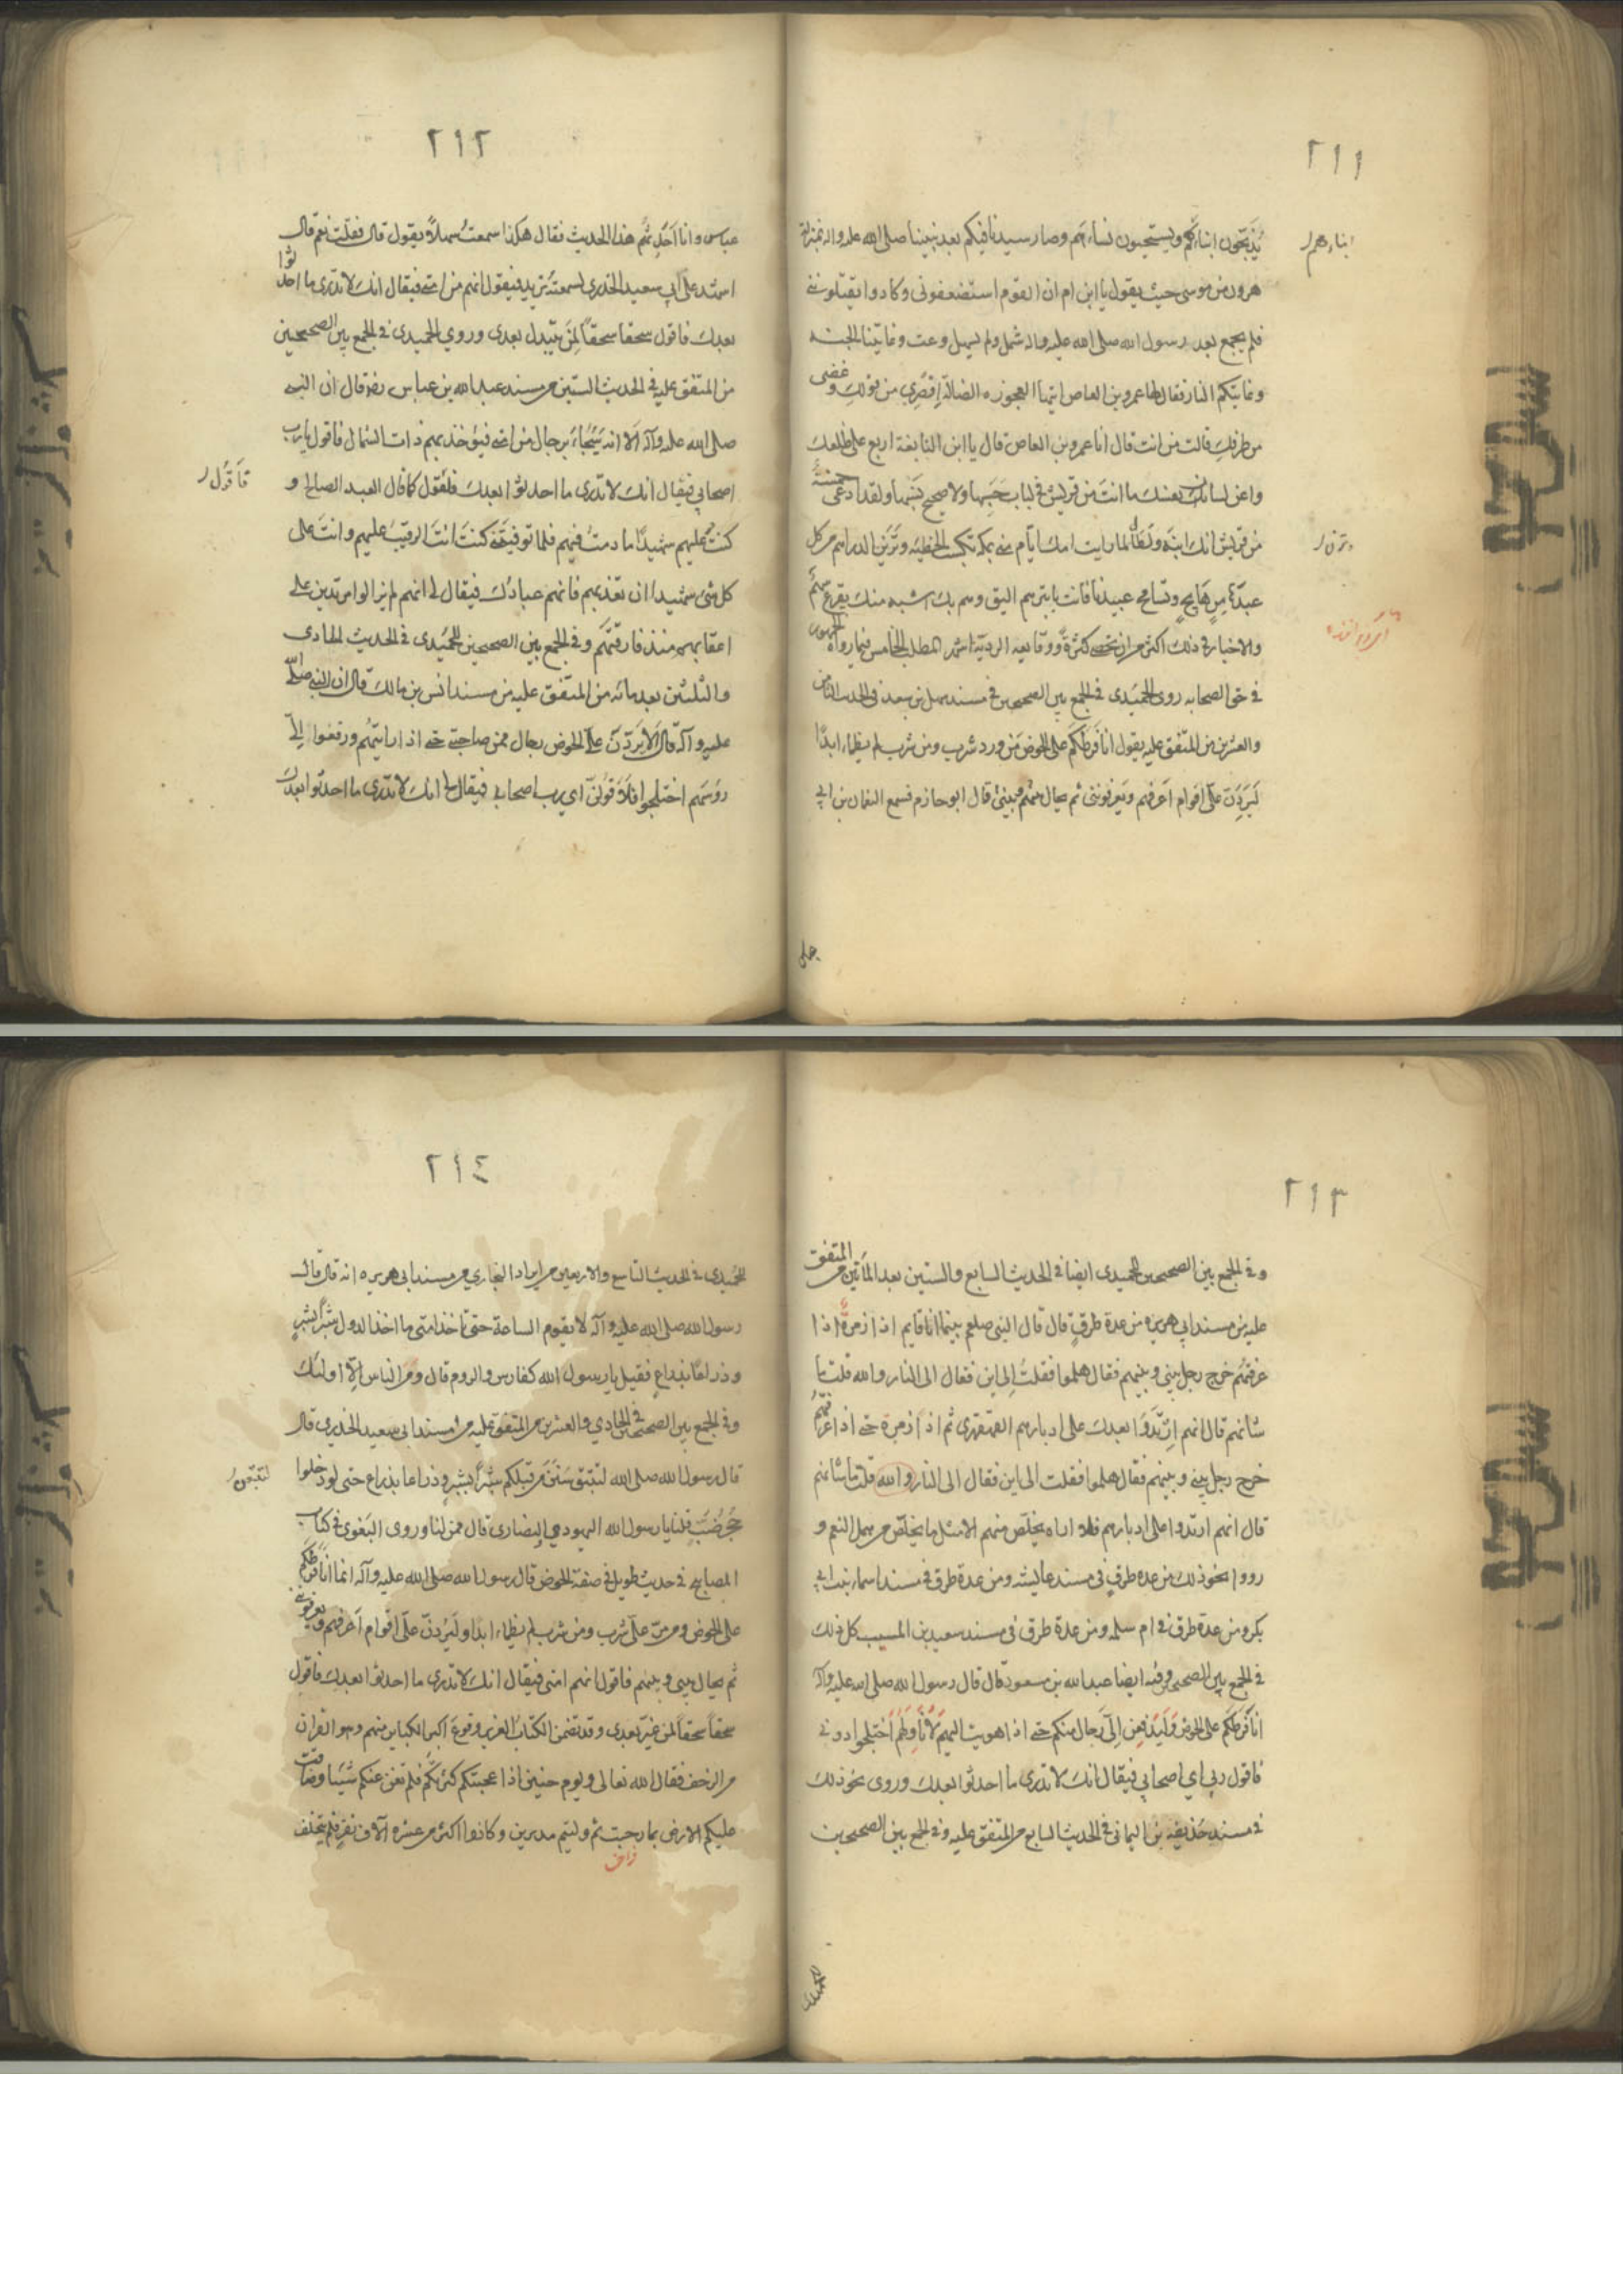 ٢١١
يُذَبِّحُون ابناءكم ويستحيون نساءهم وصار سيدنا فيكم بعد نبينا صلى الله عليه واله بمنزلة
ابناءهم
هرون من موسى حيث يقول يا ابن ام ان القوم استضعفونى وكادوا يقتلوننى
فلم يجمع بعد رسول الله صلى الله عليه واله شمل ولم يسهل وعث وغايتنا الجنة
وغايتكم النار فقال لها عمرو بن العاص ايتها العجوزه الضالة اقصرِي من قولكِ وغضى
من طرفكِ قالت من انت قال انا عمرو بن العاص قال يا ابن النابغة اربع على ظلعك
واعن لسانك بعنك ما انت من قريش فى لباب حَسَبها ولا صحيح نسَبها ولقد ادعى خمسة
من قريش انك ابنه ولطال ما رايت امك ايام منى بمكه تكسب الخطيئه وتزن الدراهم من كل
وتزنى
عبدٍ عاهر هايجٍ وتسافح عبيدنا فانت بابتهم اليق وهم بك اشبه منك بقرع سهم
والاخبار فى ذلك اكثر من ان تحصى كثرة ووقايعه الردية اشهر المطلب الخامس فيما رواه الجمهور
فى حق الصحابه روى الحُمَيدى فى الجمع بين الصحيحين فى مسند سهل بن سعد فى الحديث الثامن
والعشرين من المتفق عليه يقول انا فَرَطكم على الحوض مَن ورد شرب ومن شرب لم يظماء ابدًا
لَيَرِدَنّ علىّ اقوام اَعرفهم ويَعرفوننى ثم يحال بينهم وبينى قال ابو حازم فسمع النعمان بن ابى
٢١٢
عباس وانا اَحدِثهُم هذا الحديث فقال هكذا سمعتَ سهلاً يقول قال فقلت نعم قال
اشهد على ابى سعيد الخدرى لسمعته يزيد فيقول انهم من امتى فيقال انك لا تدرى ما احدثوا
بعدك فاقول سحقا سحقاً لِمَن تَبَدل بعدى وروى الحميدى فى الجمع بين الصحيحين
من المتفق عليه فى الحديث الستين من مسند عبد الله بن عباس رضه قال ان النبى
صلى الله عليه وآله اَلا انه سَيُجاءُ برجال من امتى فيؤخذ بهم ذات الشمال فاقول يا رب
اصحابى فيقال انك لا تدرى ما احدثوا بعدك فلقول كما قال العبد الصالح و
فاَقُول
كنتُ عليهم شهيدًا ما دمتُ فيهم فلما توفيتنى كنتَ انتَ الرقيبَ عليهم وانتَ على
كل شىء شهيد ان تعذبهم فانهم عبادك فيقال لى انهم لم يزالوا مرتدين على
اعقابهم منذ فارقتَهُم وفى الجمع بين الصحيحين للحميدى فى الحديث الحادى
والثلثين بعد مائه من المتفق عليه من مسند انس بن مالك قال ان النبى صلى الله
عليه وآله قال لَيَرِدَنّ علىّ الحوض رجال ممن صاحبنى حتى اذا رايتهُم ورفعوا الىّ
روسهم اختلجوا فلاَقولنّ اى رب اصحابى فيقال لى انك لا تدرى ما احدثوا بعدك
٢١٣
وفى الجمع بين الصحيحين للحميدى ايضا فى الحديث السابع والستين بعد المائتين من المتفق
عليه من مسند ابى هريره من عدة طرقٍ قال قال النبى صلعم بينما انا قايم اذا زمرةٌ اذا
عرفتُهم خرج رجل بينى وبينهم فقال هلموا فقلتُ الى اين فقال الى النار والله قلت ما
شانهم قال انهم ارتَدّوا بعدك على ادبارهم القهقهرى ثم اذا زمرة حتى اذا عرفتهم
خرج رجل بينى وبينهم فقال هلموا فقلت الى اين فقال الى النار والله قلت ما شانهم
قال انهم ارتدوا على ادبارهم فلا اراه يخلص منهم الا مثل ما يخلص من همل النعم و
رووا نحو ذلك من عدة طرقٍ فى مسند عايشه ومن عدة طرق فى مسند اسماء بنت ابى
بكر ومن عدة طرق فى ام سلمه ومن عدة طرق فى مسند سعيد بن المسيب كل ذلك
فى الجمع بين الصحيحين وفيه ايضا عبد الله بن مسعود قال قال رسول الله صلى الله عليه وآله
انا فَرَطكم على الحوض ولَيَرفعن اِلىّ رجال منكم حتى اذا اهويت اليهم لاُناوِلَهم اُختلجوا دونى
فاقول ربى اى اصحابى فيقال انك لا تدرى ما احدثوا بعدك وروى نحو ذلك
فى مسند حُذيفه بن اليمانى فى الحديث السابع من المتفق عليه وفى الجمع بين الصحيحين
٢١٤
للحميدى فى الحديث التاسع والاربعين من افراد البخارى من مسند ابى هريره انه قال قال
رسول الله صلى الله عليه وآله لا يقوم الساعة حتى تاخذ امتى ما اخذ الدول شبراً بشبرٍ
وذراعًا بذراعٍ فقيل يا رسول الله كفارس والروم قال ومن الناس اِلّا اولئك
وفى الجمع بين الصحيحين فى الحادى والعشرين من المتفق عليه من مسند ابى سعيد الخدرى قال
قال رسول الله صلى الله لتبتق سَنَن من قبلكم شبراً بشبرٍ وذراعا بذراع حتى لو دخلوا
لتتبعن
جُحر ضَبٍ قلنا يا رسول الله اليهود والنصارى قال فمن لنا وروى البَغوى فى كتاب
المصابيح فى حديث طويل فى صفة الحوض قال رسول الله صلى الله عليه وآله انما انا فَرطكم
على الحوض ومن مرّ علىّ شرب ومن شرب لم يظماء ابدا ولَيَرِدَنّ علىّ اقوام اَعرفهم ويعرفونى
ثم يحال بينى وبينهم فاقول انهم امتى فيقال انك لا تدرى ما احدثوا بعدك فاقول
سحقاً سحقاً لمن غيّر بعدى وقد تضمن الكتابُ العزيز وقوعَ اكبر الكباير منهم وهو الفرار
من الزحف فقال الله تعالى ويوم حنين اذا عجبتكم كثرتكُم فلم تغن عنكم شيئا وضاقت
عليكم الارض بما رحبت ثم وليتم مدبرين وكانوا اكثر من عشره آلاف نفرٍ فلم يتخلف